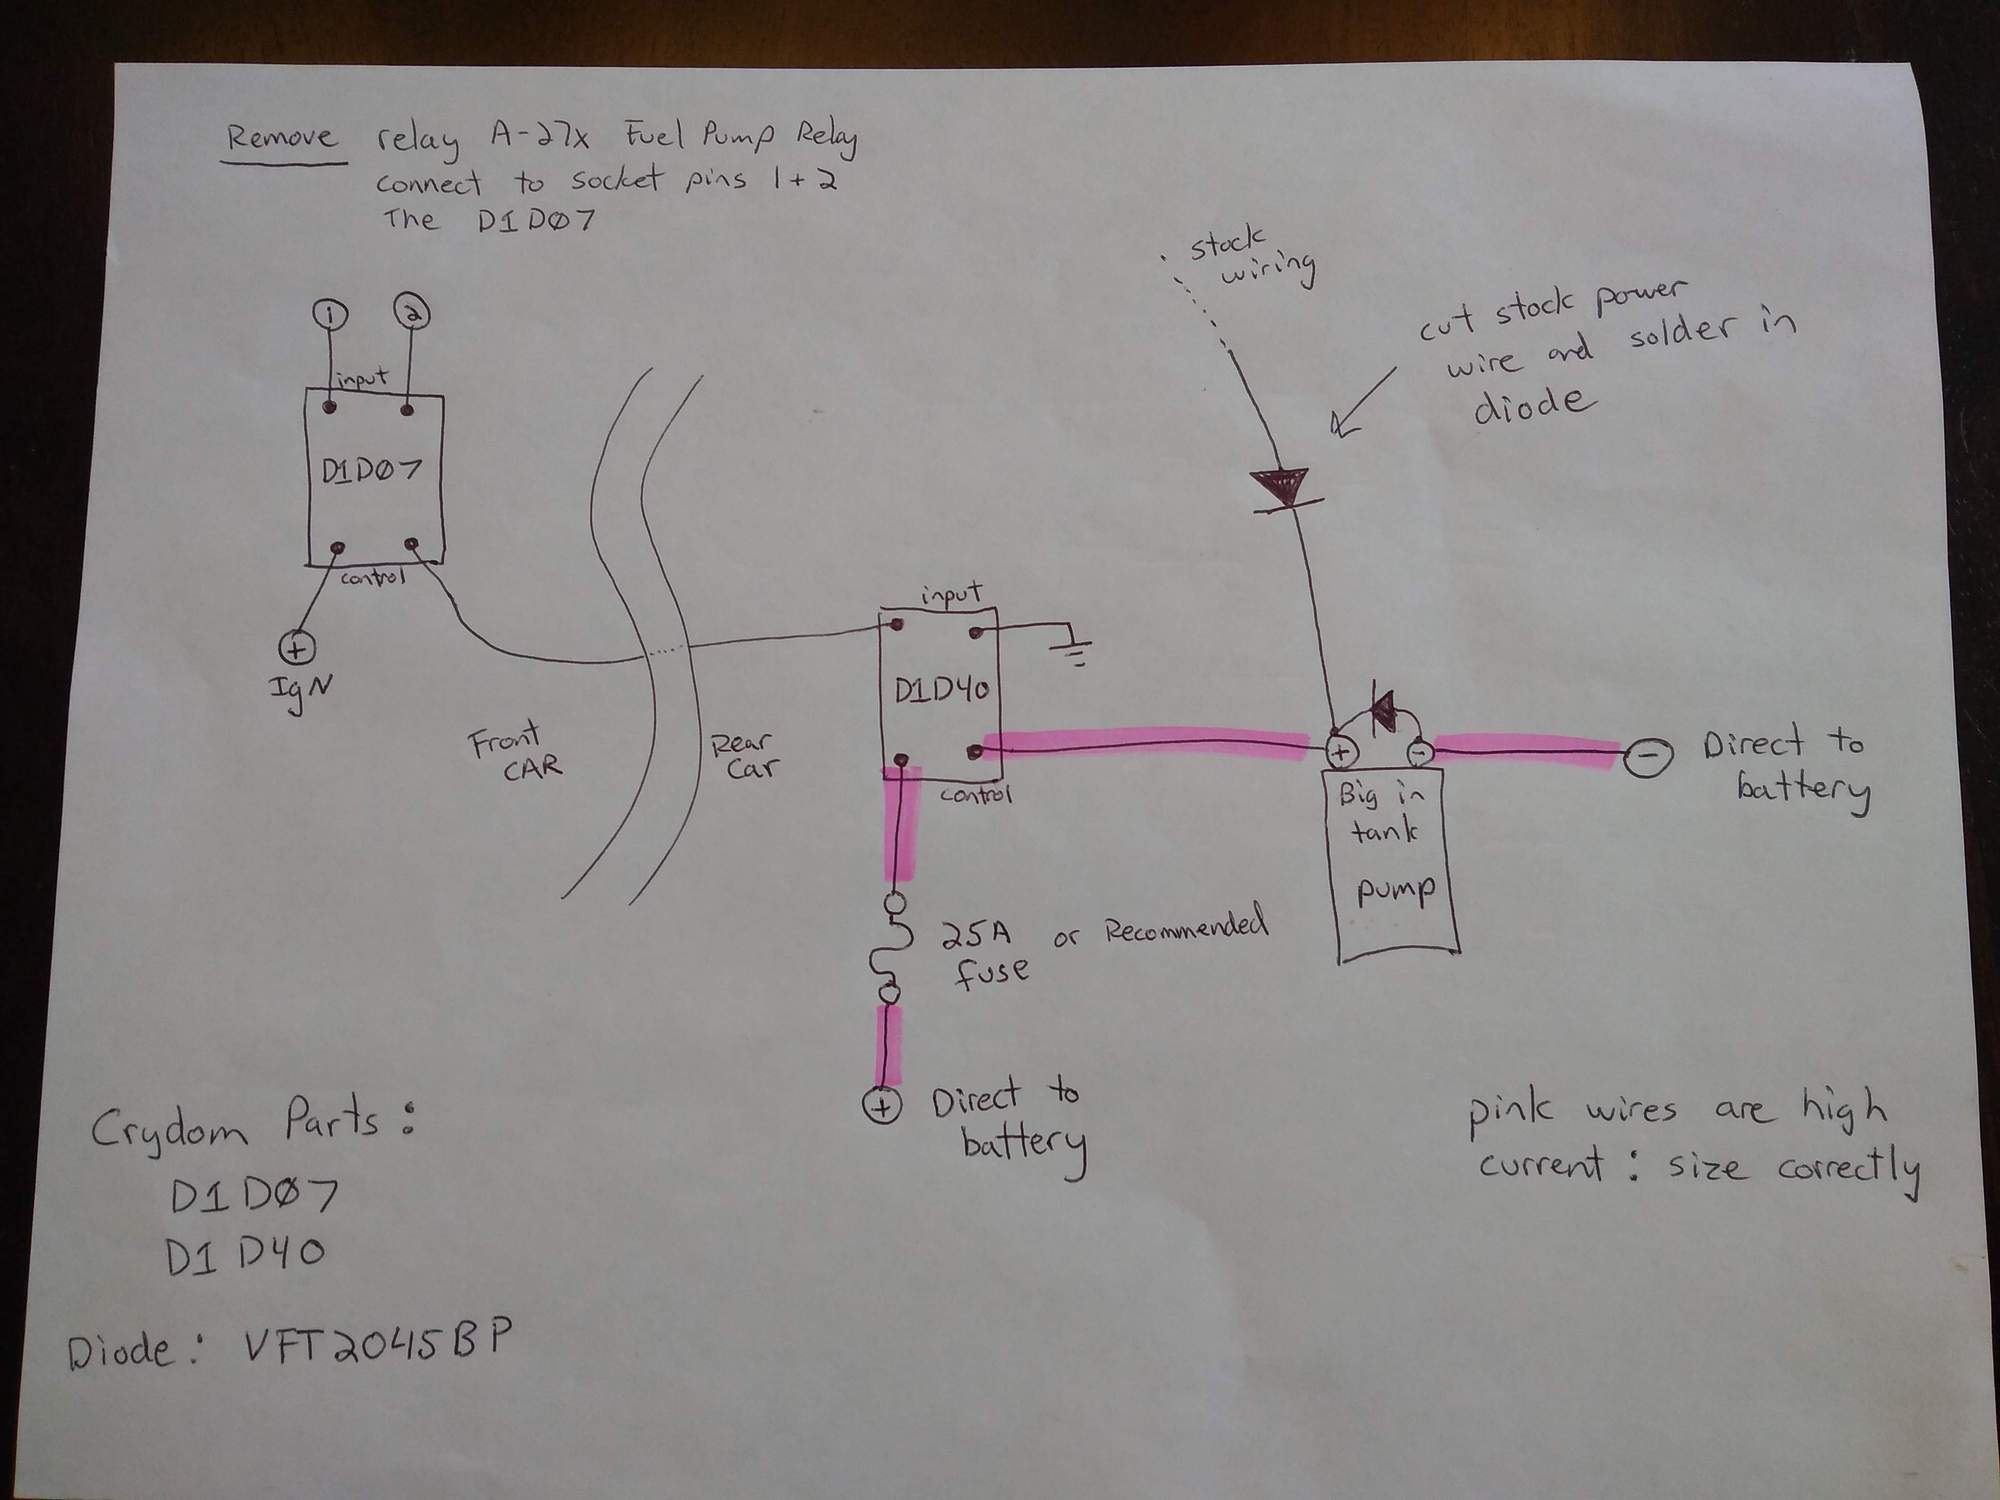 Remove relay A-27x Fuel Pump Relay
connect to socket pins 1+2
The D1D07
stock
wiring
cut stock power
wire and solder in
diode
1 2
input
D1D07
control
+
IgN
Front
CAR
Rear
Car
input
D1D40
control
+ -
Big in
tank
pump
- Direct to
battery
25A or Recommended
fuse
+ Direct to
battery
Crydom Parts:
D1D07
D1D40
Diode: VFT2045BP
pink wires are high
current: size correctly